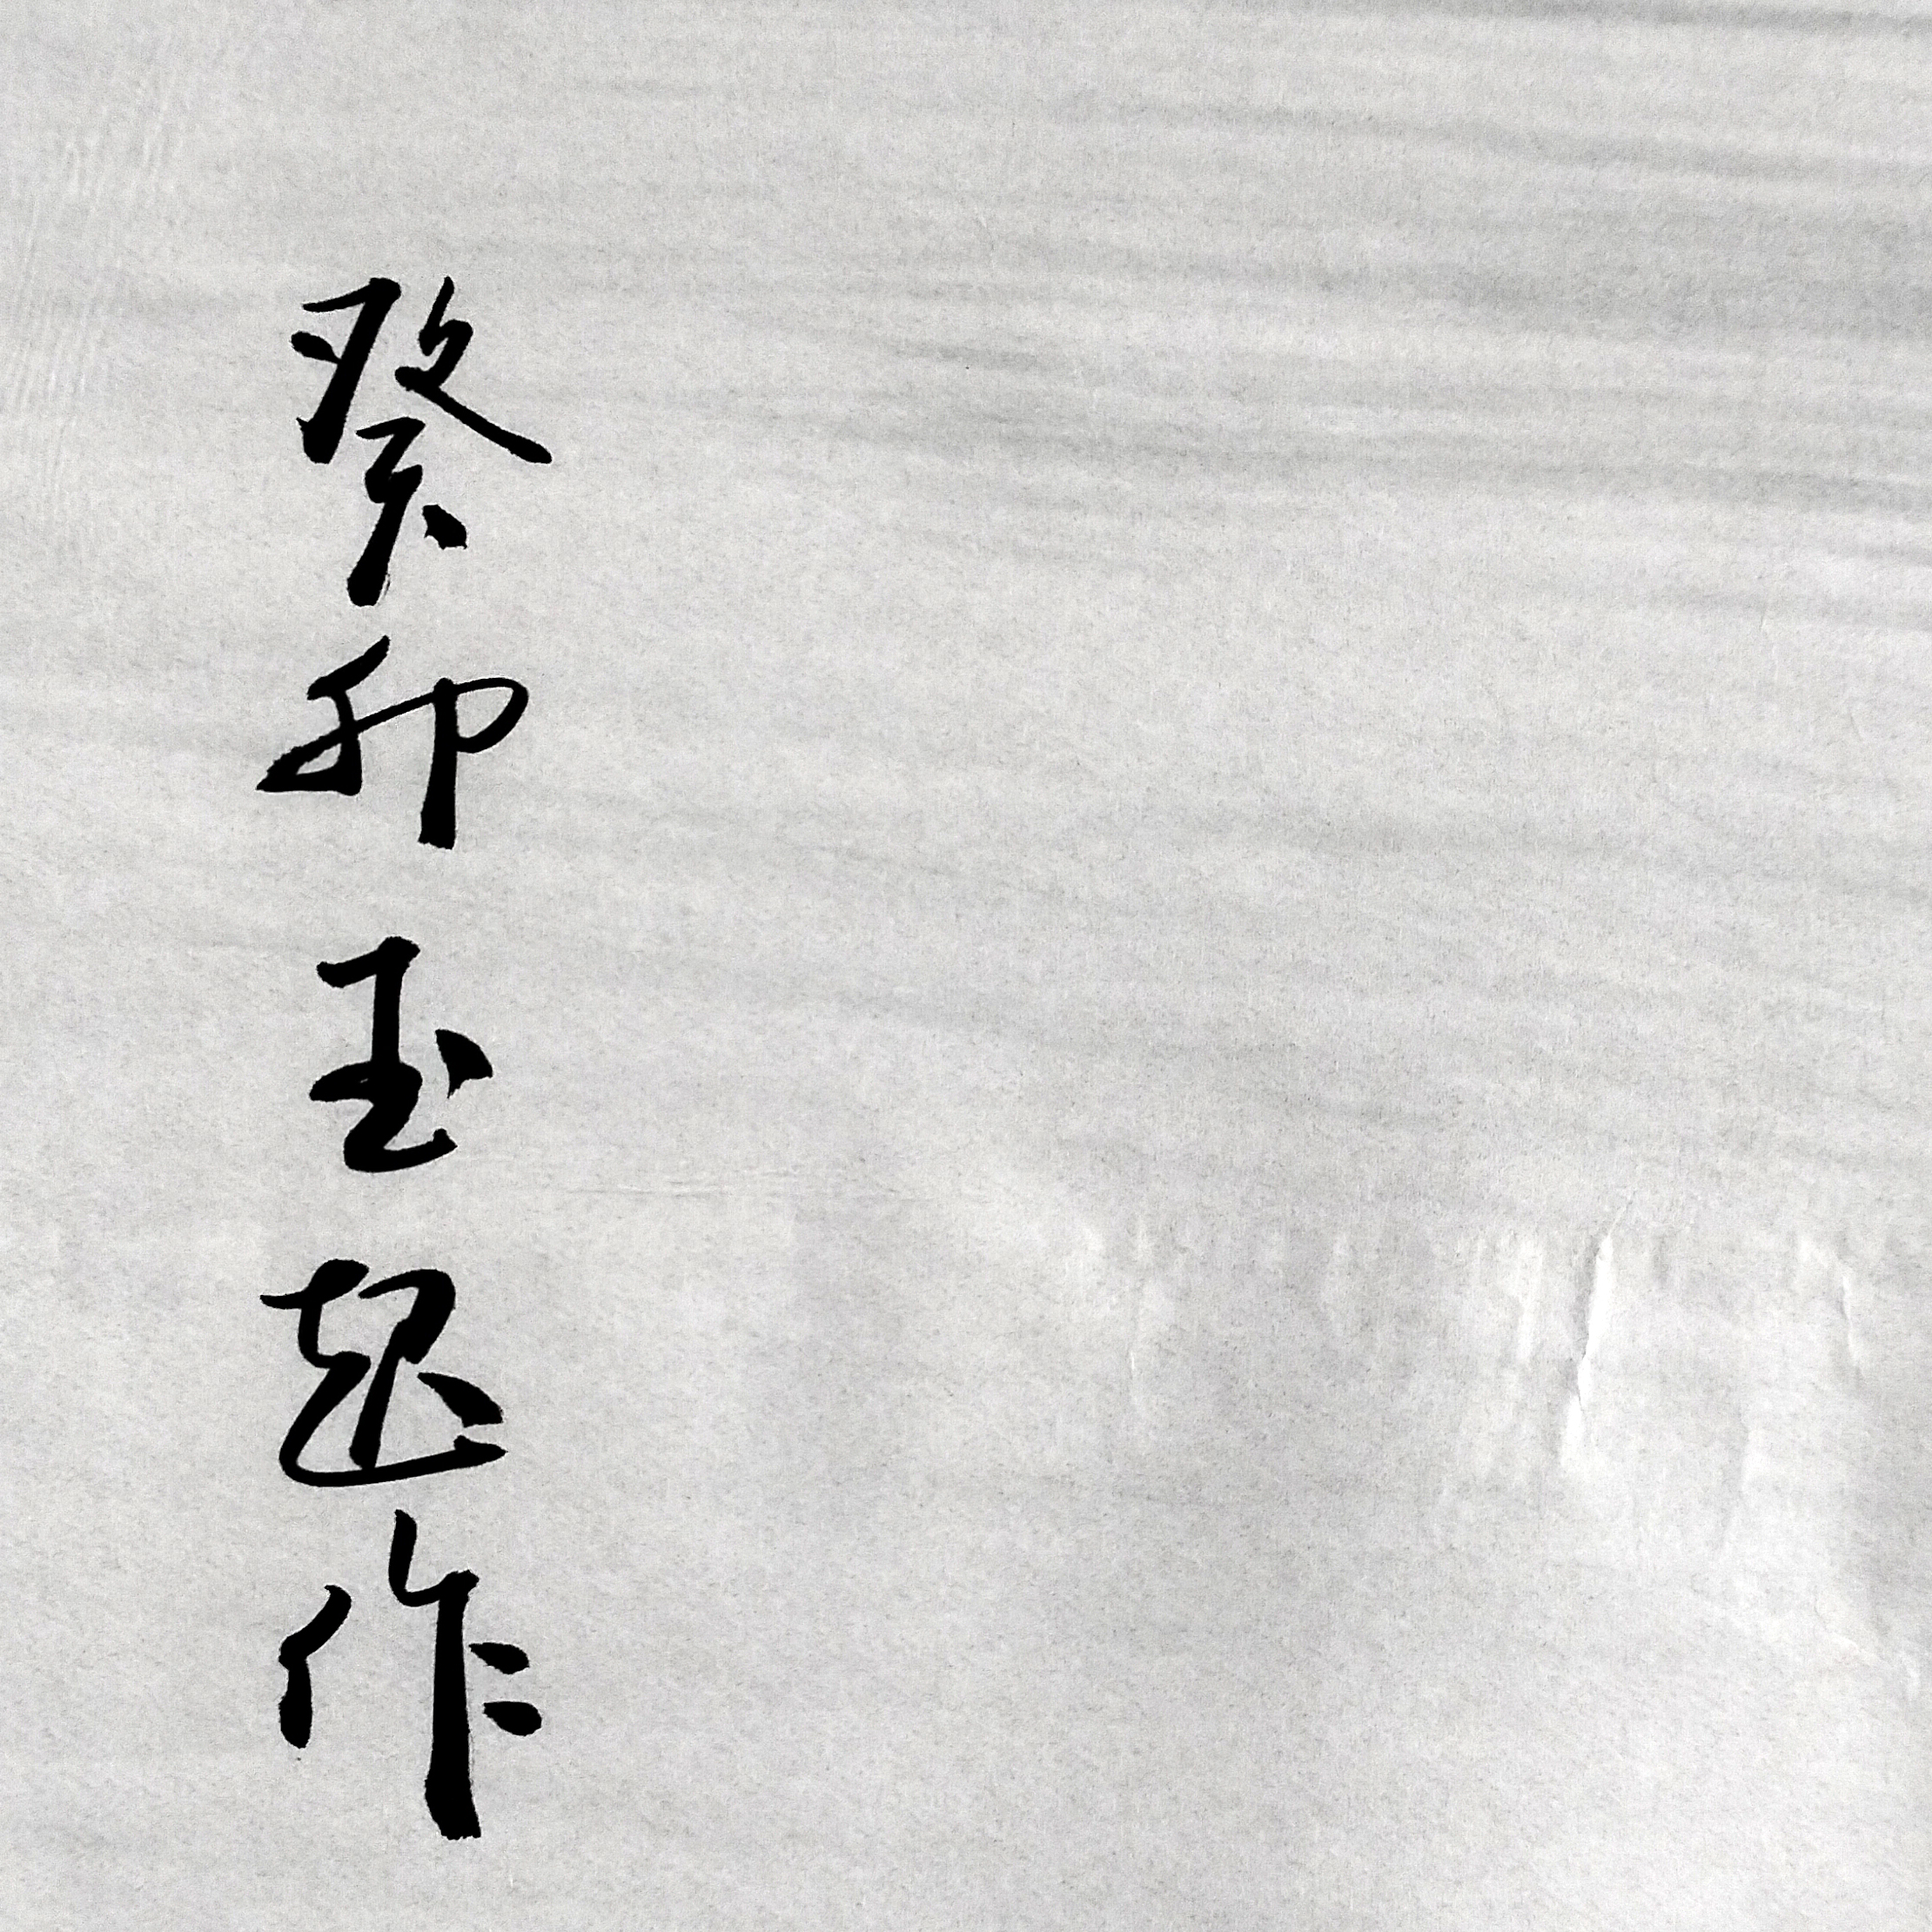 癸卯玉超作